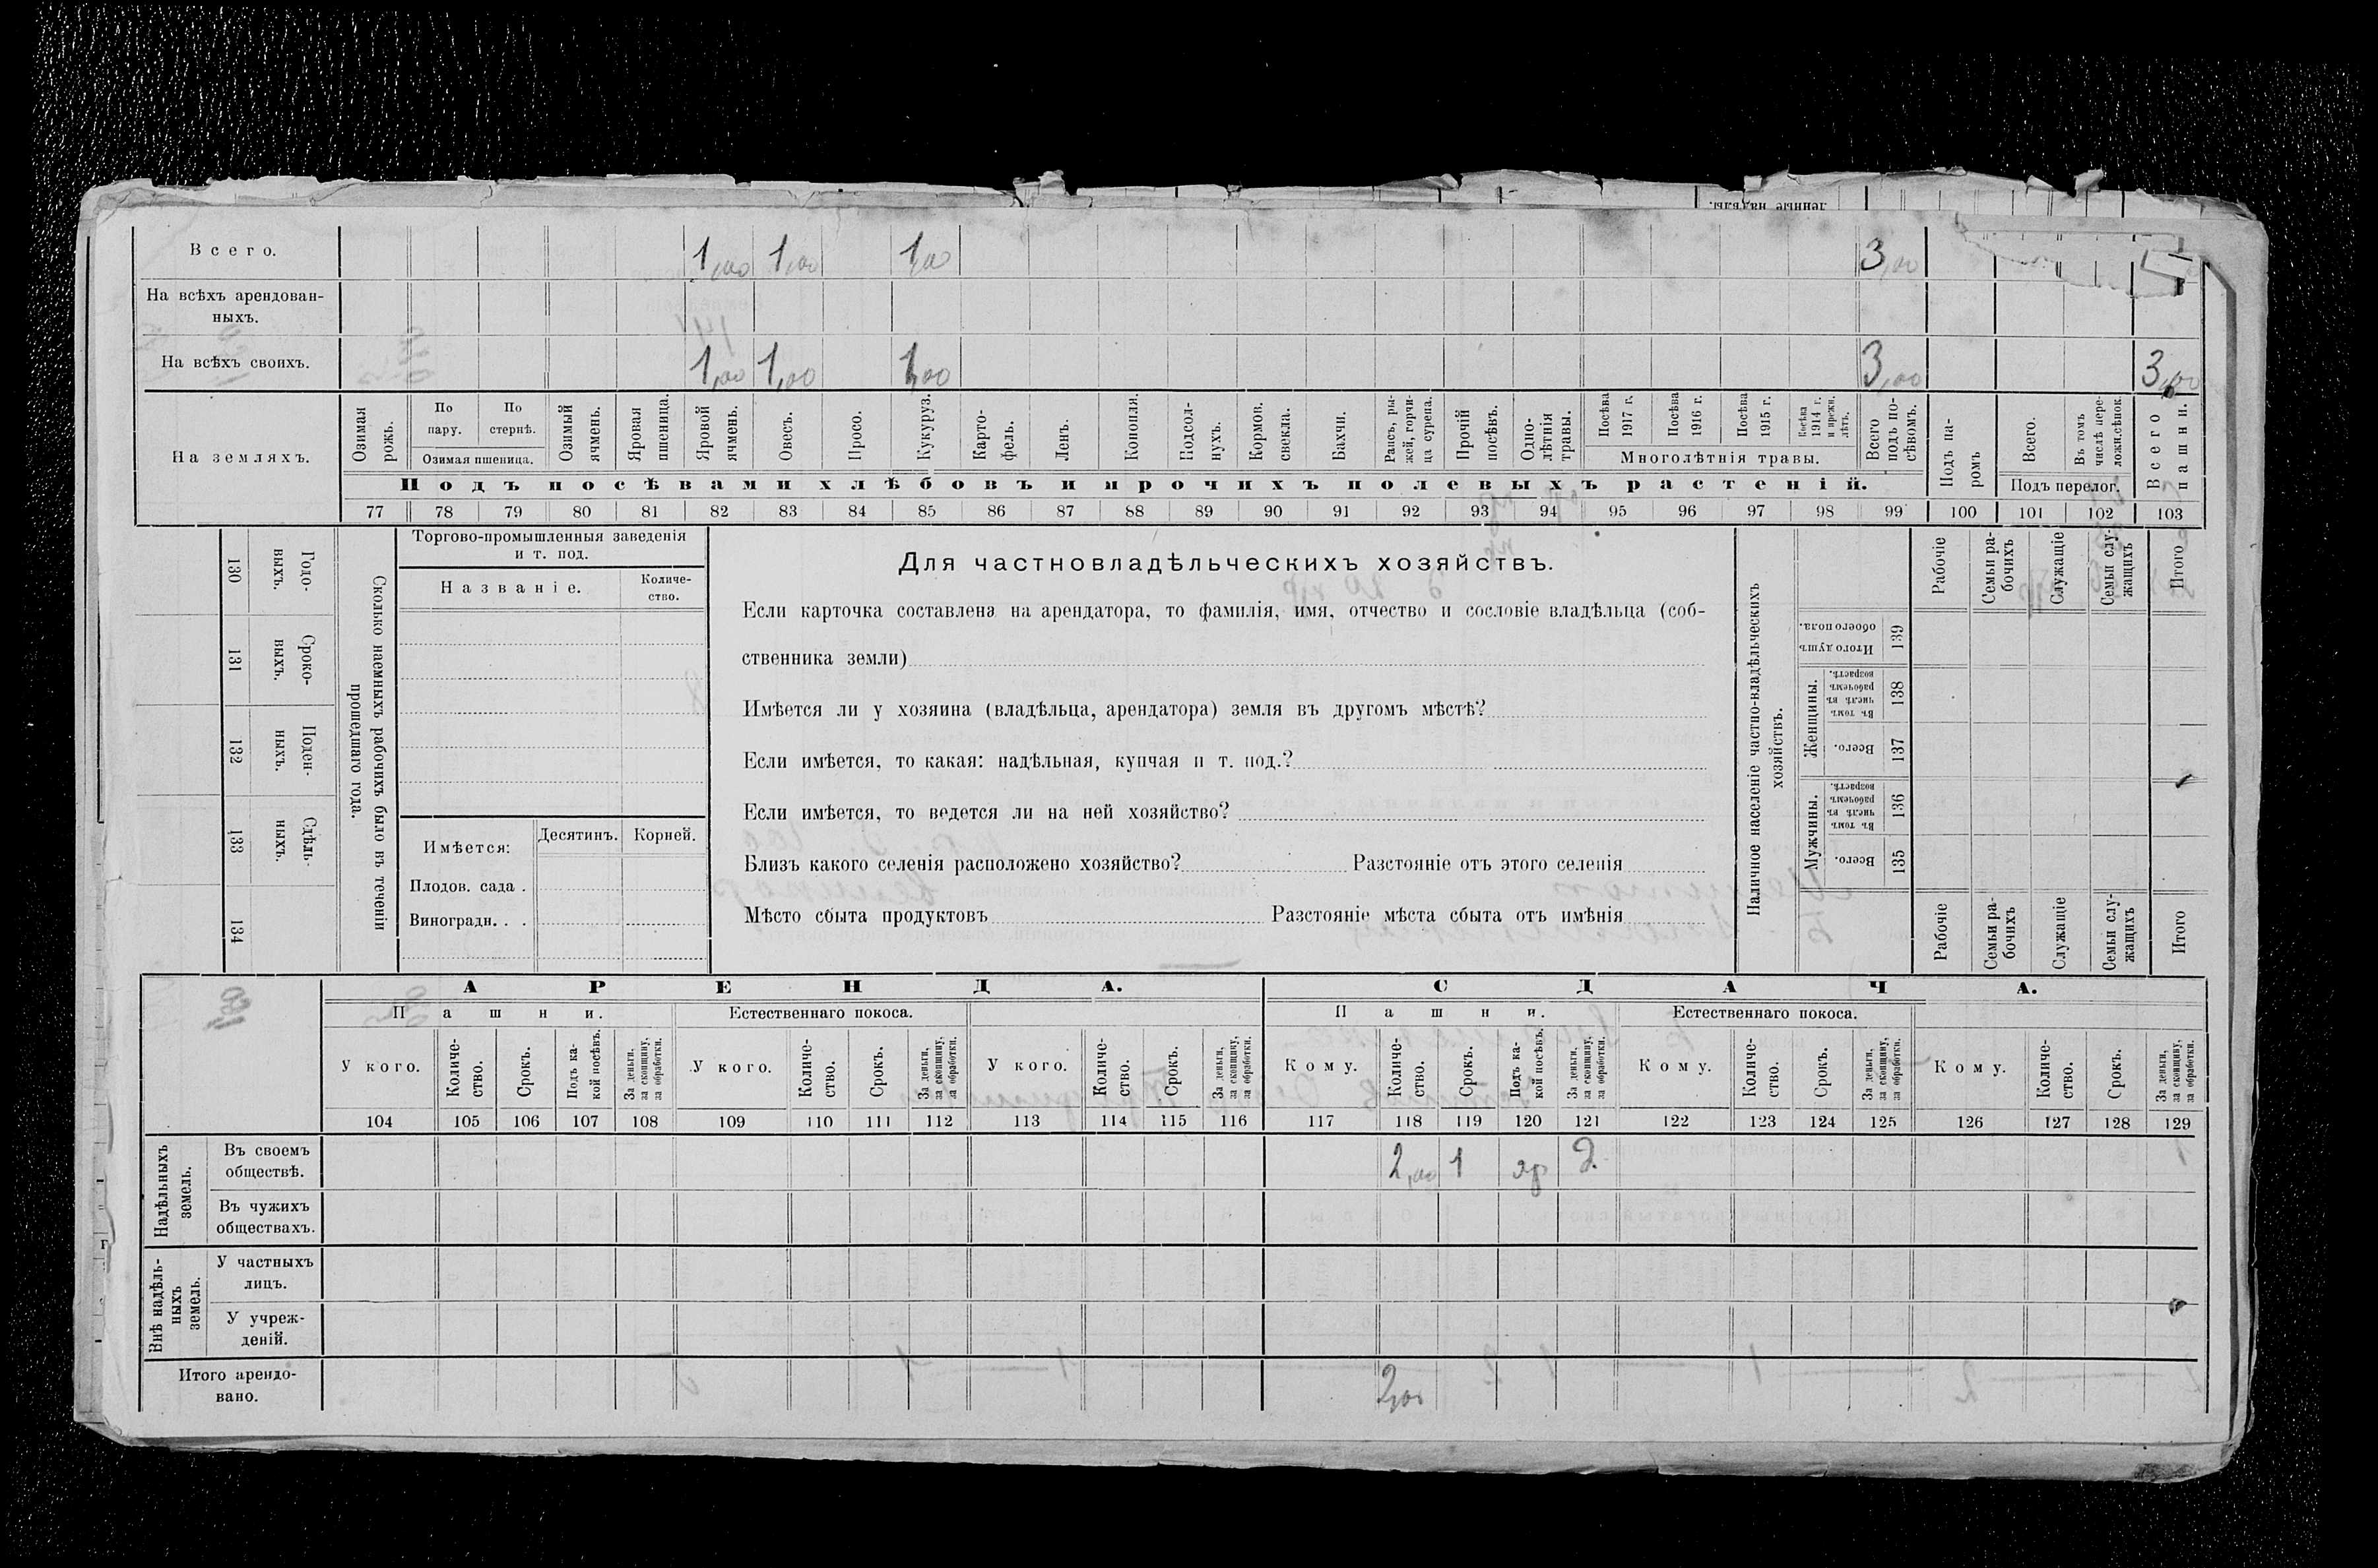 Всего. 1,00 1,00 1,00 3,00
На всѣхъ арендован-
ныхъ.
На всѣхъ своихъ. 1,00 1,00 1,00 3,00 3,00
На земляхъ.
Озимая рожь.
По пару.
По стернѣ.
Озимая пшеница.
Озимый ячмень.
Яровая пшеница.
Яровой ячмень.
Овесъ.
Просо.
Кукуруз.
Карто-
фель.
Ленъ.
Конопля.
Подсол-
нухъ.
Кормов.
свекла.
Бахчи.
Рапсъ, ры-
жей, горчи-
ца сурепа.
Прочій
посѣвъ.
Одно-
лѣтнія
травы.
Посѣва
1917 г.
Посѣва
1916 г.
Посѣва
1915 г.
Посѣва
1914 г.
и прежн.
лѣтъ.
Многолѣтнія травы.
Всего
подъ по-
сѣвомъ.
Подъ па-
ромъ
Всего.
Въ томъ
числѣ пере-
ложн.сѣнок.
Подъ перелог.
Всего
пашни.
Подъ посѣвами хлѣбовъ и прочихъ полевыхъ растеній.
77 78 79 80 81 82 83 84 85 86 87 88 89 90 91 92 93 94 95 96 97 98 99 100 101 102 103
130 Годо-
выхъ.
131 Сроко-
ныхъ.
132 Поден-
ныхъ.
133 Сдѣль-
ныхъ.
134
Сколько наемныхъ рабочихъ было въ теченіи
прошедшаго года.
Торгово-промышленныя заведенія
и т. под.
Названіе.
Количе-
ство.
Имѣется:
Десятинъ.
Корней.
Плодов. сада .
Виноградн. . .
Для частновладѣльческихъ хозяйствъ.
Если карточка составлена на арендатора, то фамилія, имя, отчество и сословіе владѣльца (соб-
ственника земли)
Имѣется ли у хозяина (владѣльца, арендатора) земля въ другомъ мѣстѣ?
Если имѣется, то какая: надѣльная, купчая и т. под.?
Если имѣется, то ведется ли на ней хозяйство?
Близъ какого селенія расположено хозяйство? Разстояніе отъ этого селенія
Мѣсто сбыта продуктовъ Разстояніе мѣста сбыта отъ имѣнія
Наличное населеніе частно-владѣльческихъ
хозяйствъ.
Рабочіе
Семьи ра-
бочихъ
Служащіе
Семьи слу-
жащихъ
Итого
Итого душъ
обоего пола.
139
Женщины.
Въ томъ
числѣ въ
рабочемъ
возрастѣ.
138
Всего.
137
Мужчины.
Въ томъ
числѣ въ
рабочемъ
возрастѣ.
136
Всего.
135
Рабочіе
Семьи ра-
бочихъ
Служащіе
Семьи слу-
жащихъ
Итого
АРЕНДА.
СДАЧА.
Пашни.
Естественнаго покоса.
Пашни.
Естественнаго покоса.
У кого.
Количе-
ство.
Срокъ.
Подъ ка-
кой посѣвъ.
За деньги,
за скопщину,
за обработки.
У кого.
Количе-
ство.
Срокъ.
За деньги,
за скопщину,
за обработки.
У кого.
Количе-
ство.
Срокъ.
За деньги,
за скопщину,
за обработки.
Кому.
Количе-
ство.
Срокъ.
Подъ ка-
кой посѣвъ.
За деньги,
за скопщину,
за обработки.
Кому.
Количе-
ство.
Срокъ.
За деньги,
за скопщину,
за обработки.
Кому.
Количе-
ство.
Срокъ.
За деньги,
за скопщину,
за обработки.
104 105 106 107 108 109 110 111 112 113 114 115 116 117 118 119 120 121 122 123 124 125 126 127 128 129
Надѣльныхъ
земель.
Въ своемъ
обществѣ. 2,00 1
Въ чужихъ
обществахъ.
Внѣ надѣль-
ныхъ
земель.
У частныхъ
лицъ.
У учреж-
деній.
Итого арендо-
вано. 2,00